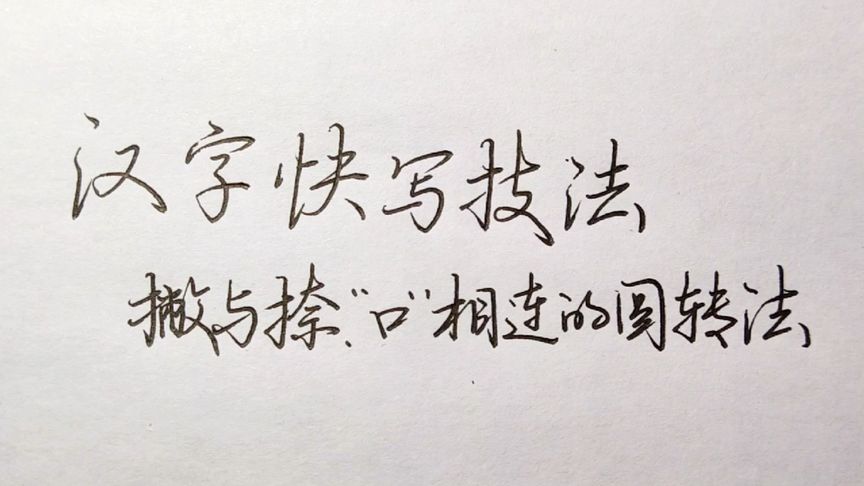 汉字快写技法
撇与捺、“口”相连的圆转法